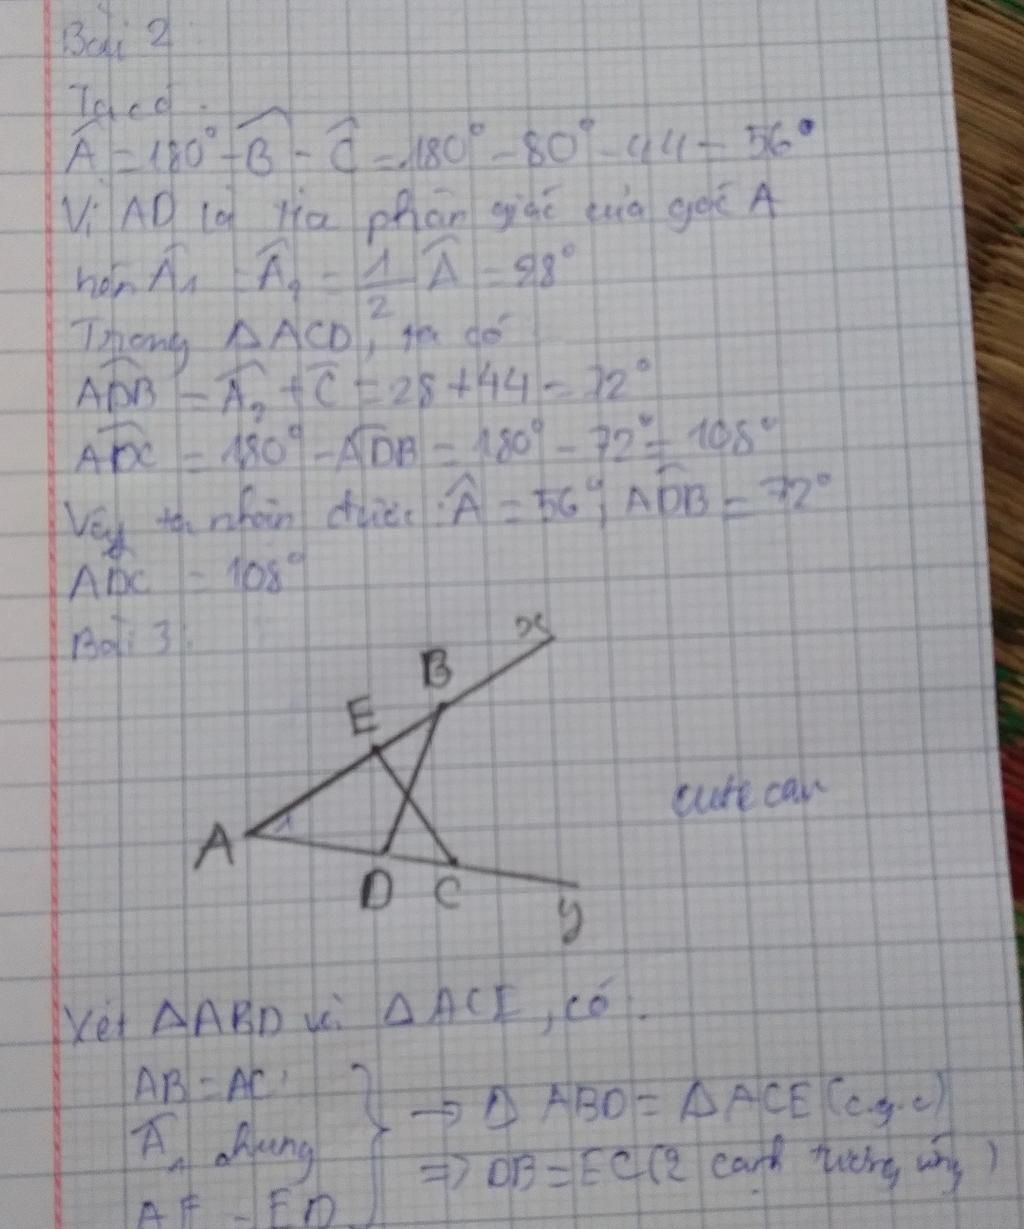 Bài 2:
Ta có:
Â = 180° - B̂ - Ĉ = 180° - 80° - 44 = 56°
Vì AD là tia phân giác của góc A
nên Â₁ = Â₂ = 1/2 Â = 28°
Trong ΔACD, ta có
ADB = Â₂ + Ĉ = 28 + 44 = 72°
ADC = 180° - ADB = 180° - 72° = 108°
Vậy ta nhận được: Â = 56°; ADB = 72°
ADC = 108°
Bài 3:
x
B
E
A
1
cute can
D C
y
Xét ΔABD và ΔACE, có:
AB = AC
Â₁ chung
AE = ED
→ Δ ABD = ΔACE (c.g.c)
⇒ DB = EC (2 cạnh tương ứng)